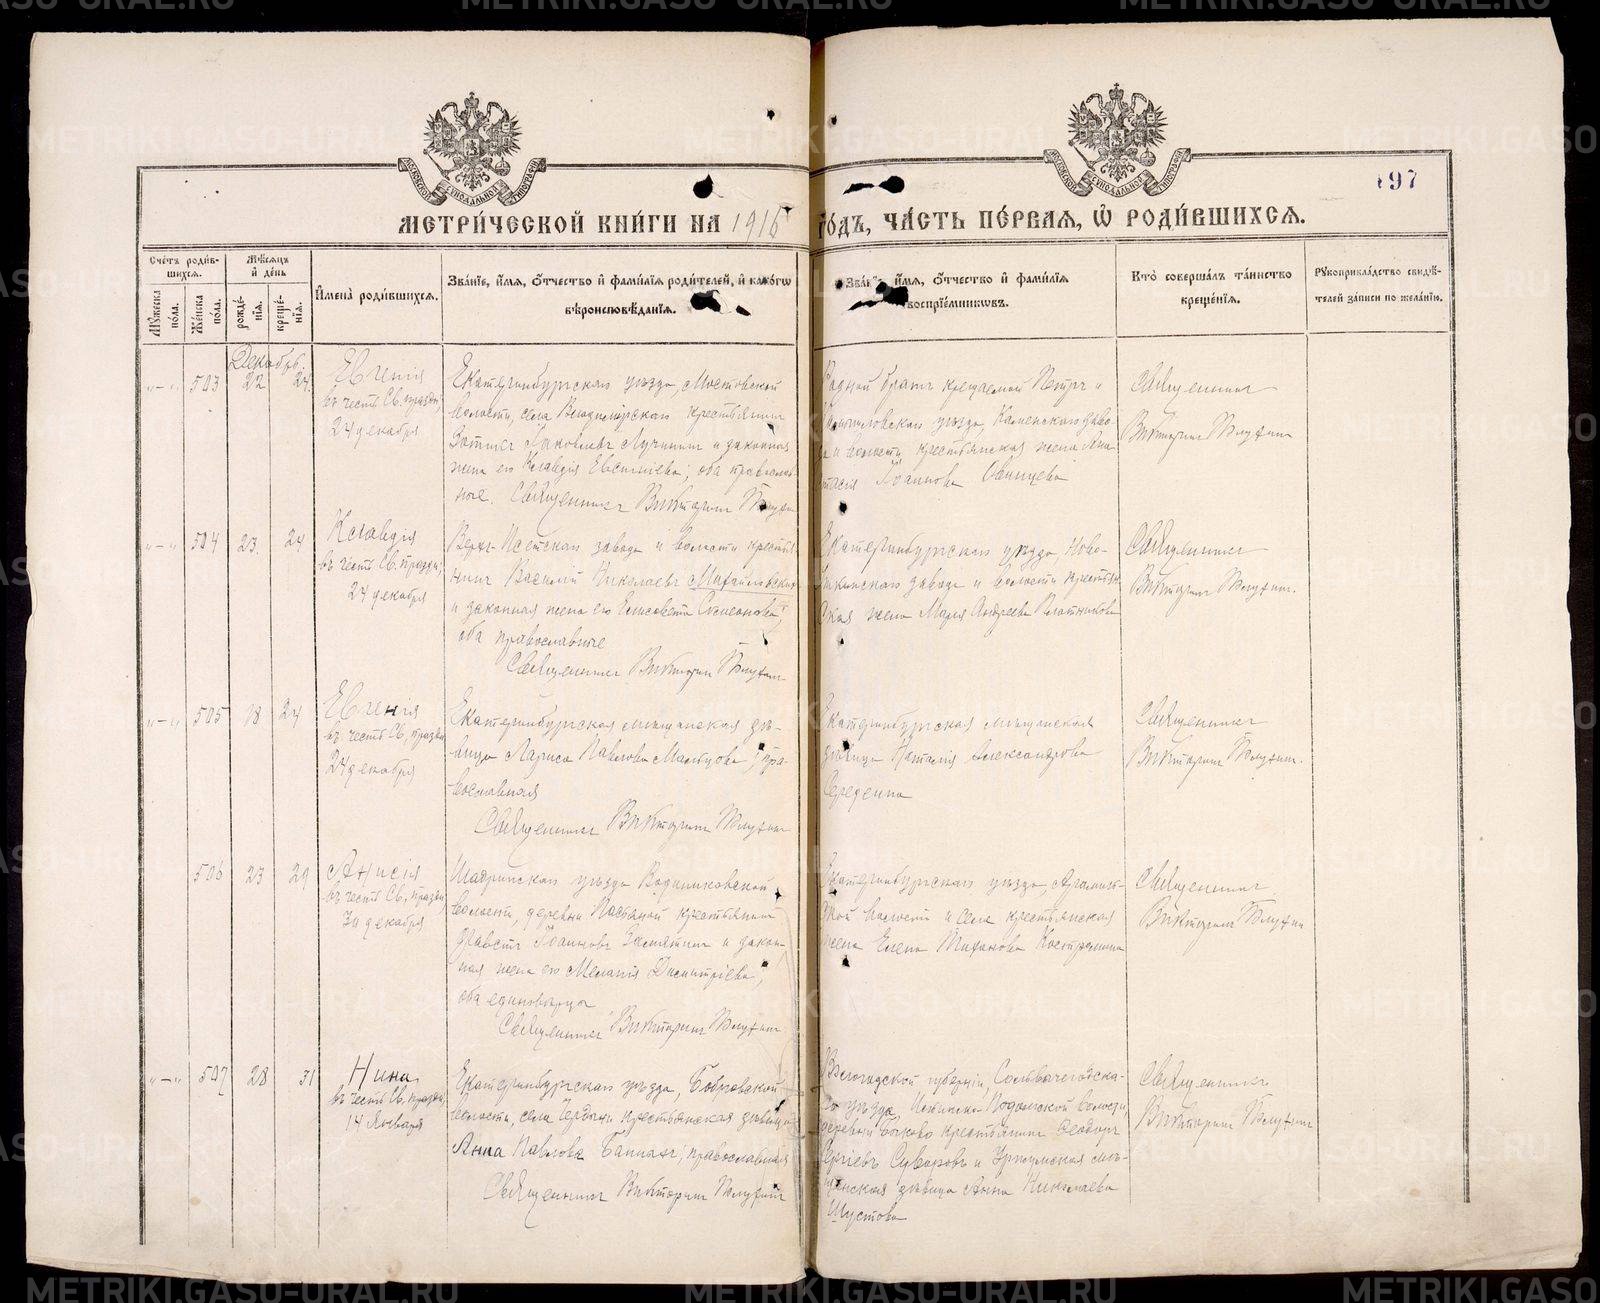 197
МЕТРИ́ЧЕСКОЙ КНИ́ГИ НА 1916 ГО́ДЪ, ЧА́СТЬ ПЕ́РВАЯ, Ѽ РОДИ́ВШИХСЯ.
Сче́тъ роди́в-
шихся.
Му́жеска по́ла.
Же́нска по́ла.
Мѣ́сяцъ
и҆ де́нь
рожде́-
нїя.
креще́-
нїя.
И҆мена̀ роди́вшихся.
Зва́нїе, и҆́мя, ѻ҆́тчество и҆ фами́лїя роди́телей, и҆ како́гѡ
вѣроисповѣ́данїя.
Зва́нїе, и҆́мя, ѻ҆́тчество и҆ фами́лїя
воспрїе́мникѡвъ.
Кто̀ соверша́лъ та́инство
креще́нїя.
Рꙋкоприкла́дство свидѣ́-
телей за́писи по жела́нїю.
Декабрь.
503 22 24
Евгенія
въ честь Св. праздн.
24 декабря
Екатеринбургскаго уѣзда, Мостовской
волости, села крестьянинъ
Яковлевъ Лучининъ и законная
жена его Клавдія Евгеніева; оба православ-
ные. Священникъ Викторинъ
Родной братъ крещаемой Петръ и
уѣзда, Каменскаго заво-
да и волости крестьянская жена Ана-
стасія Іоаннова
Священникъ
Викторинъ
504 23 24
Клавдія
въ честь Св. праздн.
24 декабря
Верхъ-Исетскаго завода и волости крестья-
нинъ Василій Николаевъ Михайловскихъ
и законная жена его Елисавета Симеонова,
оба православные
Священникъ Викторинъ
Екатеринбургскаго уѣзда, Ново-
Уткинскаго завода и волости крестьян-
ская жена Марія Андреева Плотникова
Священникъ
Викторинъ
505 18 24
Евгенія
въ честь Св. праздн.
24 декабря
Екатеринбургская мѣщанская дѣ-
вица Лариса Павлова Мальцова, пра-
вославная
Священникъ Викторинъ
Екатеринбургская мѣщанская
дѣвица Наталія Александрова
Середкина
Священникъ
Викторинъ
506 23 29
Анисія
въ честь Св. праздн.
30 декабря
Шадринскаго уѣзда Водениковской
волости, деревни крестьянинъ
Іоанновъ Замятинъ и закон-
ная жена его Меланія Димитріева,
оба единовѣрцы
Священникъ Викторинъ
Екатеринбургскаго уѣзда, Арамиль-
ской волости и села крестьянская
жена Елена Костромина
Священникъ
Викторинъ
507 28 31
Нина
въ честь Св. праздн.
14 Января
Екатеринбургскаго уѣзда, Бобровской
волости, села крестьянская дѣвица
Анна Павлова православная
Священникъ Викторинъ
Вологодской губерніи, Сольвычегодска-
го уѣзда, волости,
деревни Быково крестьянинъ Ѳеодоръ
Сергіевъ Суворовъ и Уржумская мѣ-
щанская дѣвица Анна Николаева
Шустова
Священникъ
Викторинъ
METRIKI.GASO-URAL.RU